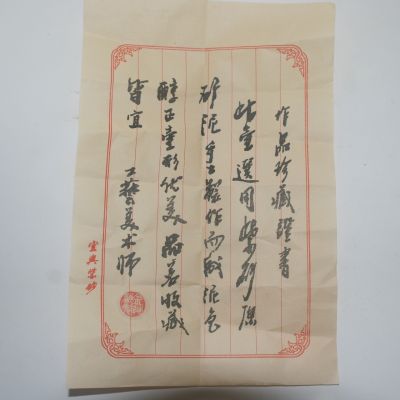 作品珍藏證書
此壶選用紫砂原
矿泥手工製作而成泥色
醇正壶形优美品茗收藏
皆宜
工藝美术师
宜興紫砂